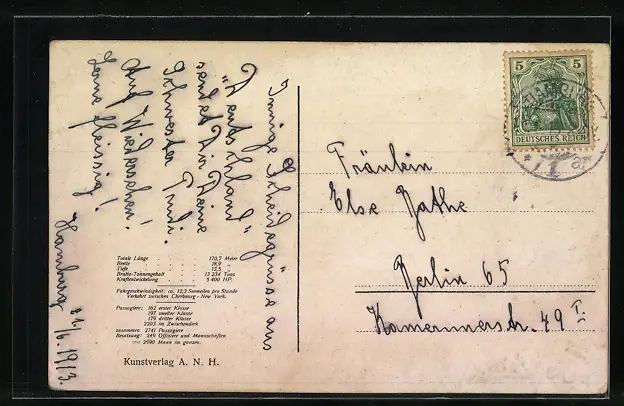 Innige Scheidegrüsse aus
"Deutschland"
sendet Dir Deine
Schwester Trudi.
Auf Wiedersehen!
Lerne fleissig!
Hamburg 21/6 1913.
Totale Länge 170,7 Meter
Breite 18,9 "
Tiefe 12,5 "
Brutto-Tonnengehalt 13 234 Tons
Kraftentwickelung 5 400 HP.
Fahrgeschwindigkeit: ca. 12,3 Seemeilen pro Stunde
Verkehrt zwischen Cherbourg - New York.
Passagiere: 162 erster Klasse
197 zweiter Klasse
179 dritter Klasse
2203 im Zwischendeck
zusammen 2741 Passagiere
Besatzung: 249 Offiziere und Mannschaften
2990 Mann im ganzen.
Kunstverlag A. N. H.
5 5
DEUTSCHES REICH
HAMBURG
1
Fräulein
Else Rathe
Berlin 65
Kamerunerstr. 49 I